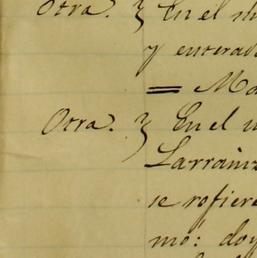 Otra. } En el
y enterad
= Ma
Otra. } En el
Larrainz
se refiere
mó: doy